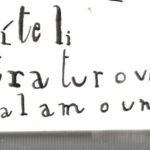 íteli
raturou
alamoun